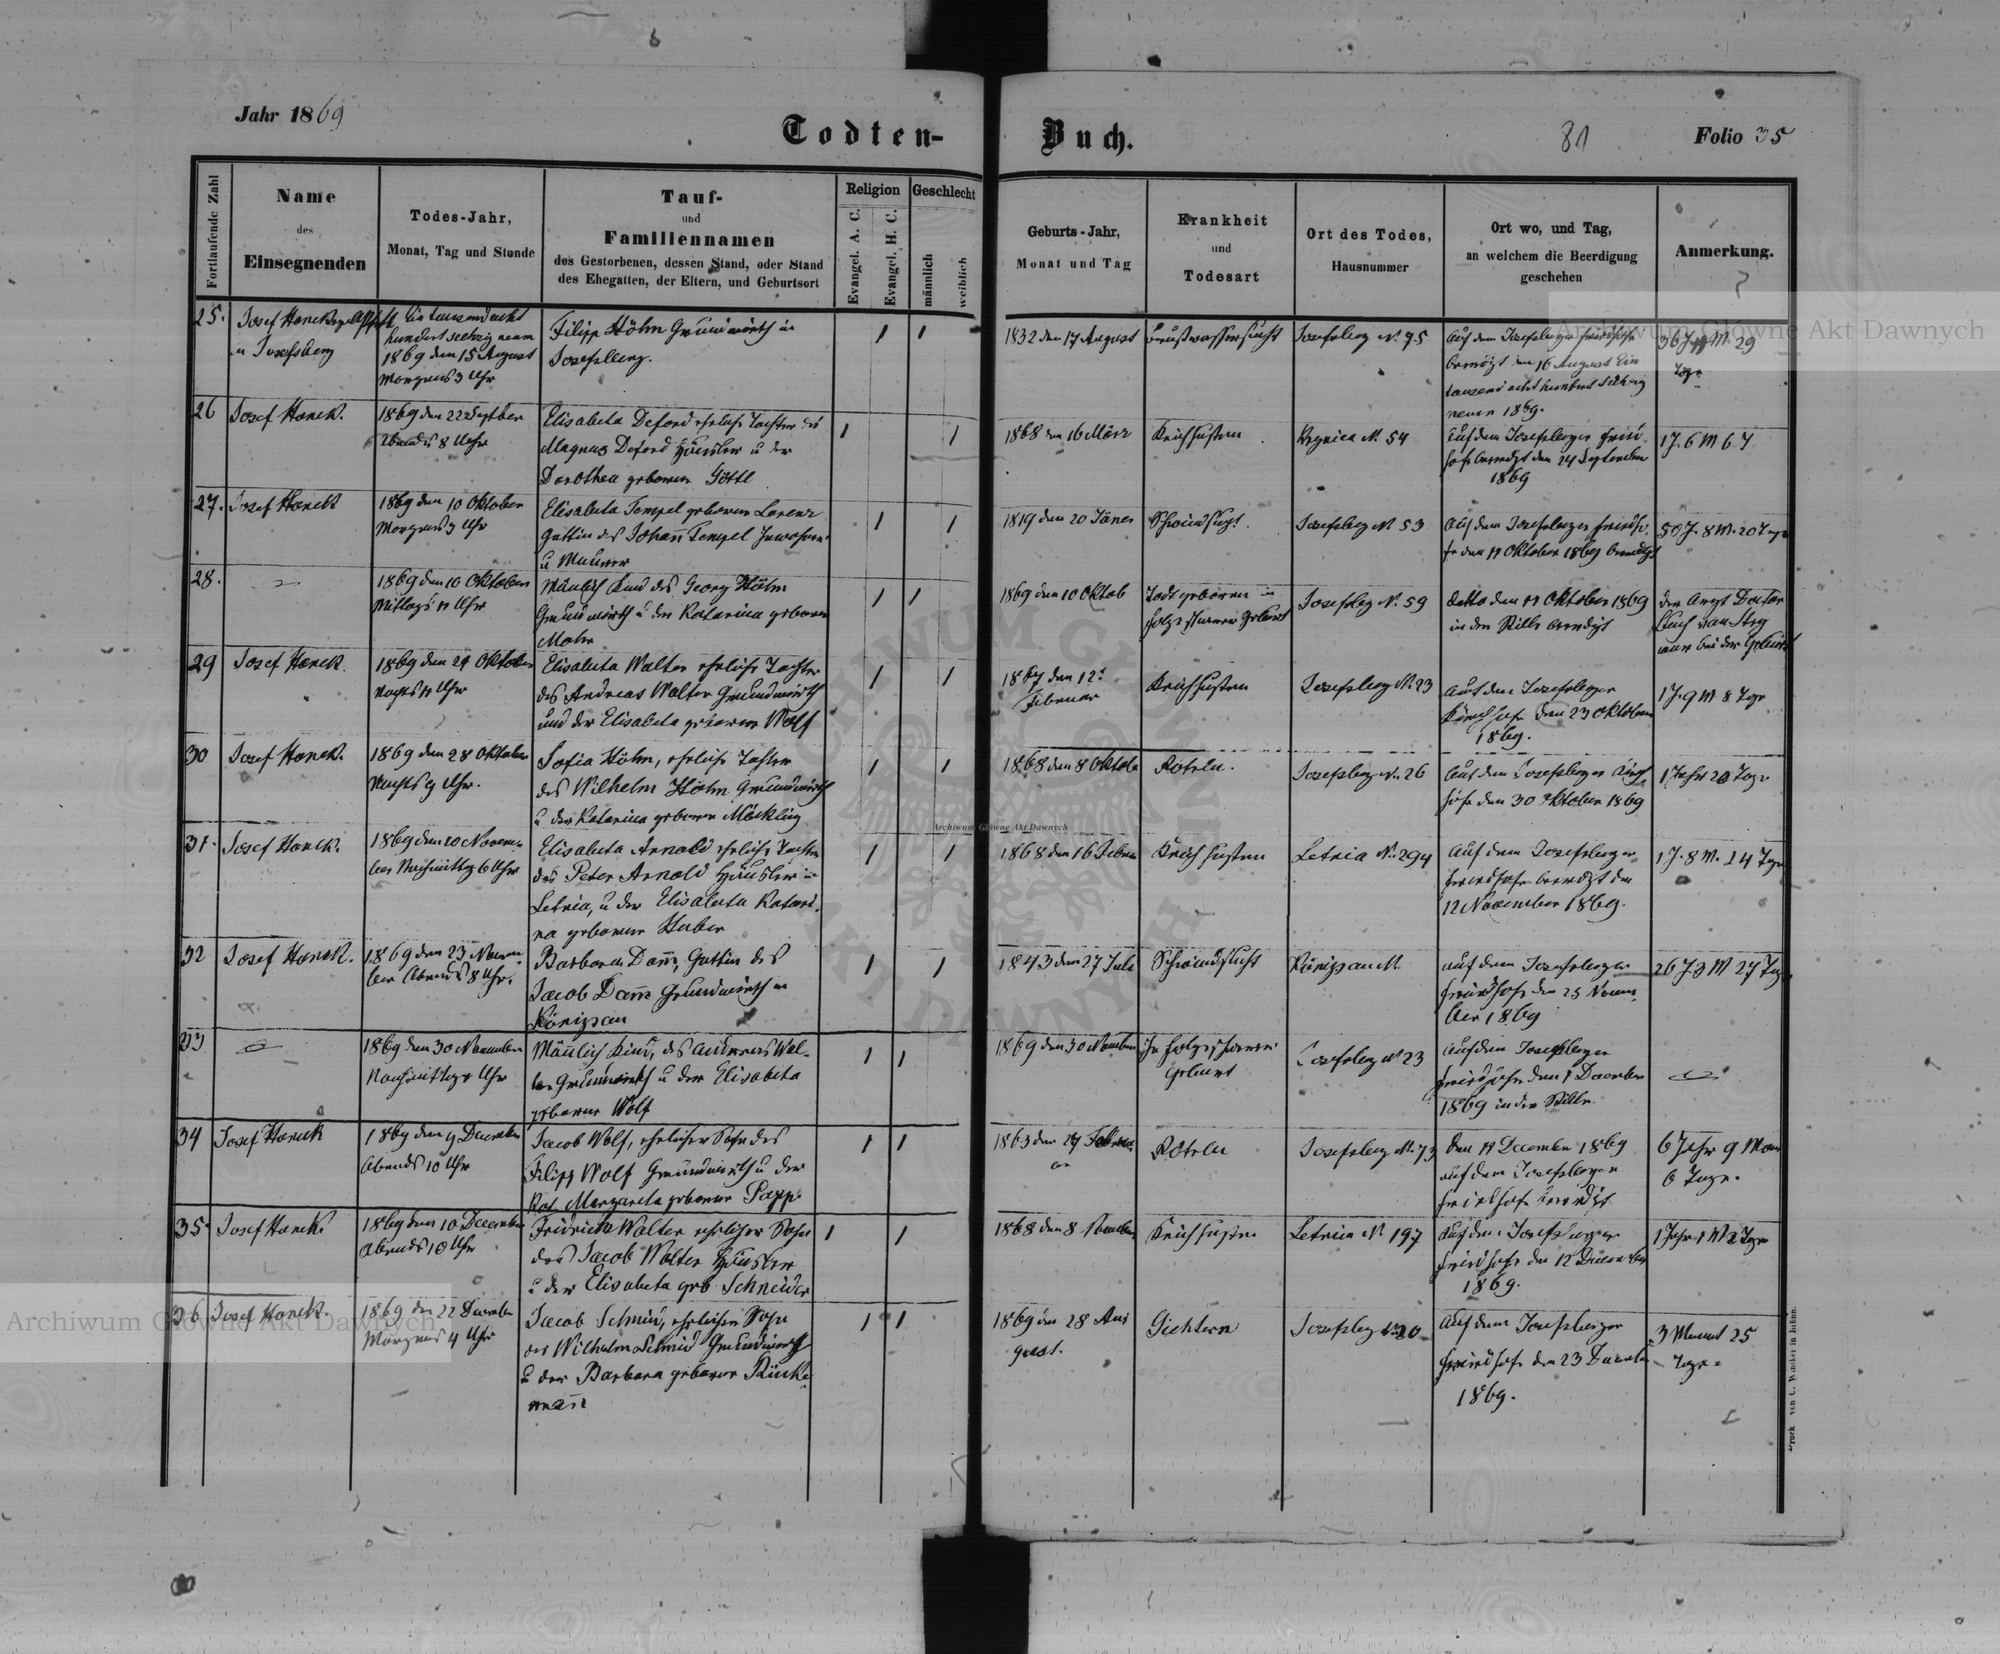 Jahr 1869
Todten-Buch.
81
Folio 35
Fortlaufende Zahl
Name
des
Einsegnenden
Todes-Jahr,
Monat, Tag und Stunde
Tauf-
und
Familiennamen
des Gestorbenen, dessen Stand, oder Stand
des Ehegatten, der Eltern, und Geburtsort
Religion
Evangel. A. C.
Evangel. H. C.
Geschlecht
männlich
weiblich
Geburts-Jahr,
Monat und Tag
Krankheit
und
Todesart
Ort des Todes,
Hausnummer
Ort wo, und Tag,
an welchem die Beerdigung
geschehen
Anmerkung.
25.
Josef Hanek
in Josefsberg
Ein tausend acht
hundert sechzig neun
1869 den 15 August
Morgens 3 Uhr
Filipp Höhn Grundwirth in
Josefsberg.
1832 den 17 August
Brustwassersucht
Josefsberg N. 75
Auf dem Josefsberger Friedhofe
beerdigt den 16 August Ein
tausend acht hundert sechzig
neun 1869.
36 J. 11 M. 29
Tage
26
Josef Hanek.
1869 den 22 Septber
Abends 8 Uhr
Elisabeta Deford eheliche Tochter des
Magnus Deford Häusler u der
Dorothea geborene Göttl
1868 den 16 März
Keichhusten
N. 54
Auf dem Josefsberger Fried-
hofe beerdigt den 24 September
1869
1 J. 6 M 6 T
27.
Josef Hanek
1869 den 10 Oktober
Morgens 3 Uhr
Elisabeta Tempel geborene Lorenz
Gattin des Johan Tempel Inwohner
u Maurer
1819 den 20 Jäner
Schwindsucht.
Josefsberg N 53
Auf dem Josefsberger Friedho-
fe den 11 Oktober 1869 beerdigt
50 J. 8 M. 20 Tage
28.
1869 den 10 Oktober
Mittags 11 Uhr
Mänlich Kind des Georg Höhn
Grundwirth u der Katarina geborene
Mohr
1869 den 10 Oktob
Todt geboren in
Folge schwerer Geburt
Josefsbg N. 59
detto den 11 Oktober 1869
in der Stille beerdigt
der Arzt Doctor
Buch von Stry
war bei der Geburt
29
Josef Hanek.
1869 den 21 Oktober
Nachts 11 Uhr
Elisabeta Walter eheliche Tochter
des Andreas Walter Grundwirth
und der Elisabeta geborene Wolf
1867 den 12t
Februar
Keichhusten
Josefsberg N. 23
Auf dem Josefsberger
Kirchhofe den 23 Oktober
1869.
1 J. 9 M 8 Tage
30
Josef Hanek.
1869 den 28 Oktober
Nachts 9 Uhr.
Sofia Höhn, eheliche Tochter
des Wilhelm Höhn Grundwirth
u der Katarina geborene Möckling
1868 den 8 Oktobe
Röteln.
Josefsberg N. 26
Auf dem Josefsberger Kirch
hofe den 30 Oktober 1869
1 Jahr 20 Tage
31.
Josef Hanek.
1869 den 10 Novem-
ber Nachmittag 6 Uhr
Elisabeta Arnold eheliche Tochter
des Peter Arnold Häusler in
Letnia, u der Elisabeta Katari-
na geborene Huber
1868 den 16 Febru
Keichhusten
Letnia N. 294
Auf dem Josefsberger
Friedhofe beerdigt den
12 November 1869.
1 J. 8 M. 24 Tage
32
Josef Hanek.
1869 den 23 Novem-
ber Abends 8 Uhr.
Barbara Dam̄, Gattin des
Jacob Dam̄ Grundwirth in
Königsau
1843 den 27 Juli
Schwindsucht
Königsau N.
auf dem Josefsberger
Friedhofe den 25 Novem-
ber 1869
26 J 3 M 27 Tag
33
1869 den 30 November
Nachmittag Uhr
Mänlich Kind, des Andreas Wal-
ter Grundwirth u der Elisabeta
geborene Wolf
1869 den 30 November
In Folge schwerer
Geburt
Josefsberg N 23
Auf dem Josefsberger
Friedhofe den 1 December
1869 in der Stille
34
Josef Hanek
1869 den 9 December
Abends 10 Uhr
Jacob Wolf, ehelicher Sohn des
Filipp Wolf Grundwirth u der
Kat. Margareta geborene Papp
1863 den 27 Februa
ar
Röteln
Josefsberg N. 73
Den 11 December 1869
auf dem Josefsberger
Friedhofe beerdigt
6 Jahr 9 Mon
6 Tage.
35.
Josef Hanek.
1869 den 10 December
Abends 10 Uhr
Fridrich Walter ehelicher Sohn
des Jacob Walter Häusler
u der Elisabeta geb Schneider
1868 den 8 November
Keichhusten
Letnia N. 197
Auf dem Josefsberger
Friedhofe den 12 December
1869.
1 Jahr 1 M 2 Tage
36
Josef Hanek.
1869 den 22 December
Morgens 4 Uhr
Jacob Schmid, ehelicher Sohn
des Wilhelm Schmid Grundwirth
u der Barbara geborene Rinke-
man̄
1869 den 28 Au-
gust.
Gichtern
Josefsbg N. 20
Auf dem Josefsberger
Friedhofe den 23 December
1869.
3 Monat 25
Tage.
Druck von C. Winiker in Brünn.
Archiwum Główne Akt Dawnych
Archiwum Główne Akt Dawnych
Archiwum Główne Akt Dawnych
ARCHIWUM GŁÓWNE AKT DAWNYCH